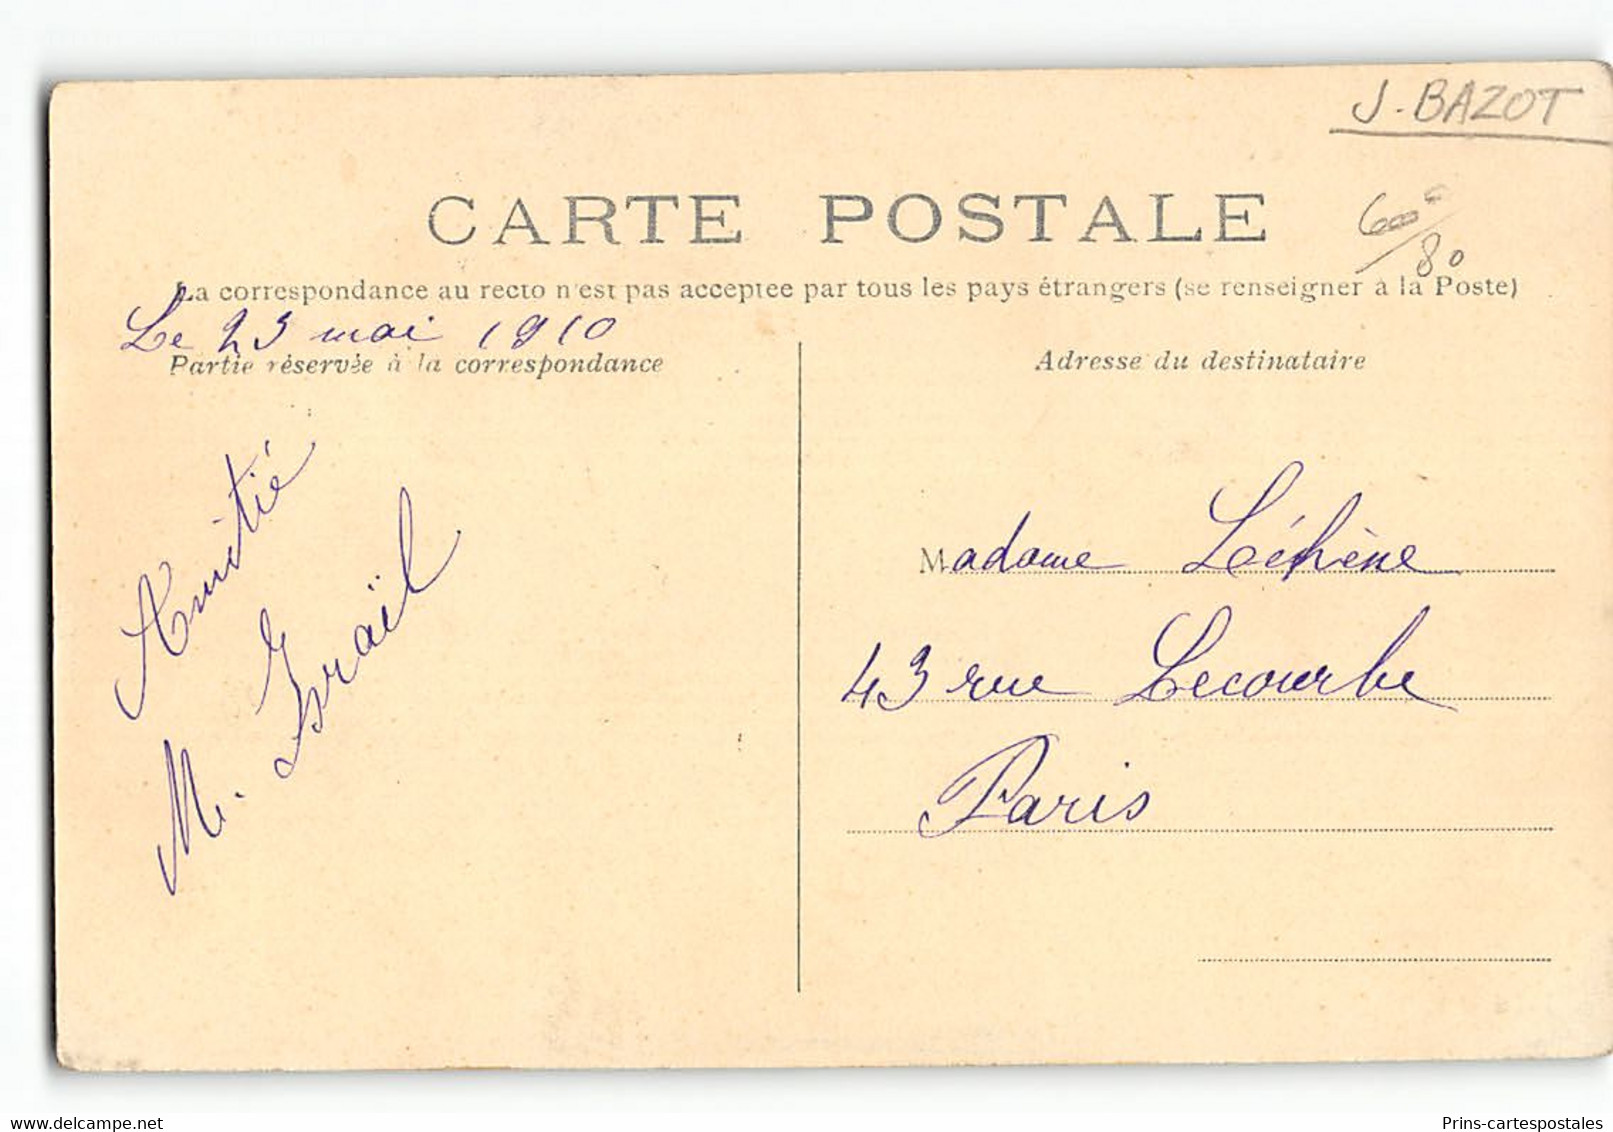 J. BAZOT
CARTE POSTALE
La correspondance au recto n'est pas acceptée par tous les pays étrangers (se renseigner à la Poste)
Le 23 mai 1910
Partie réservée à la correspondance
Adresse du destinataire
Amitié
M. Israël
Madame Léhène
43 rue Lecourbe
Paris
Prins-cartespostales